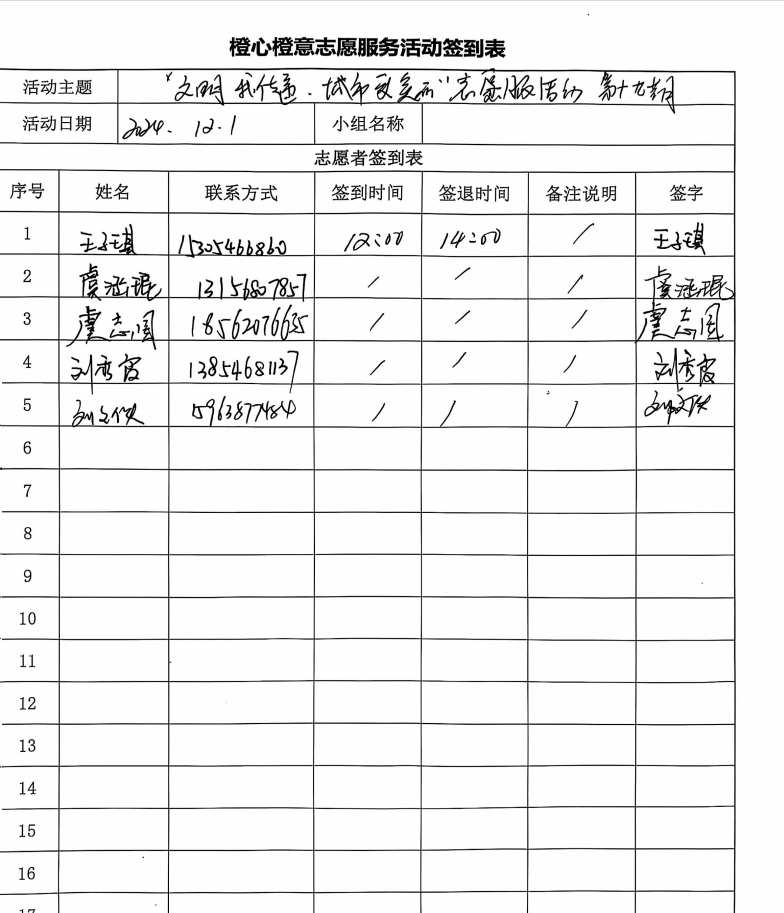 橙心橙意志愿服务活动签到表
活动主题 "文明我传递·城市更美丽"志愿服活动 第十九期
活动日期 2024.12.1 小组名称
志愿者签到表
序号 姓名 联系方式 签到时间 签退时间 备注说明 签字
1 王子琪 15305466860 12:00 14:00 / 王子琪
2 虞涵琨 13156807857 / / / 虞涵琨
3 虞志国 18562076635 / / / 虞志国
4 刘秀霞 13854681137 / / / 刘秀霞
5 15963877484 / / /
6
7
8
9
10
11
12
13
14
15
16
17